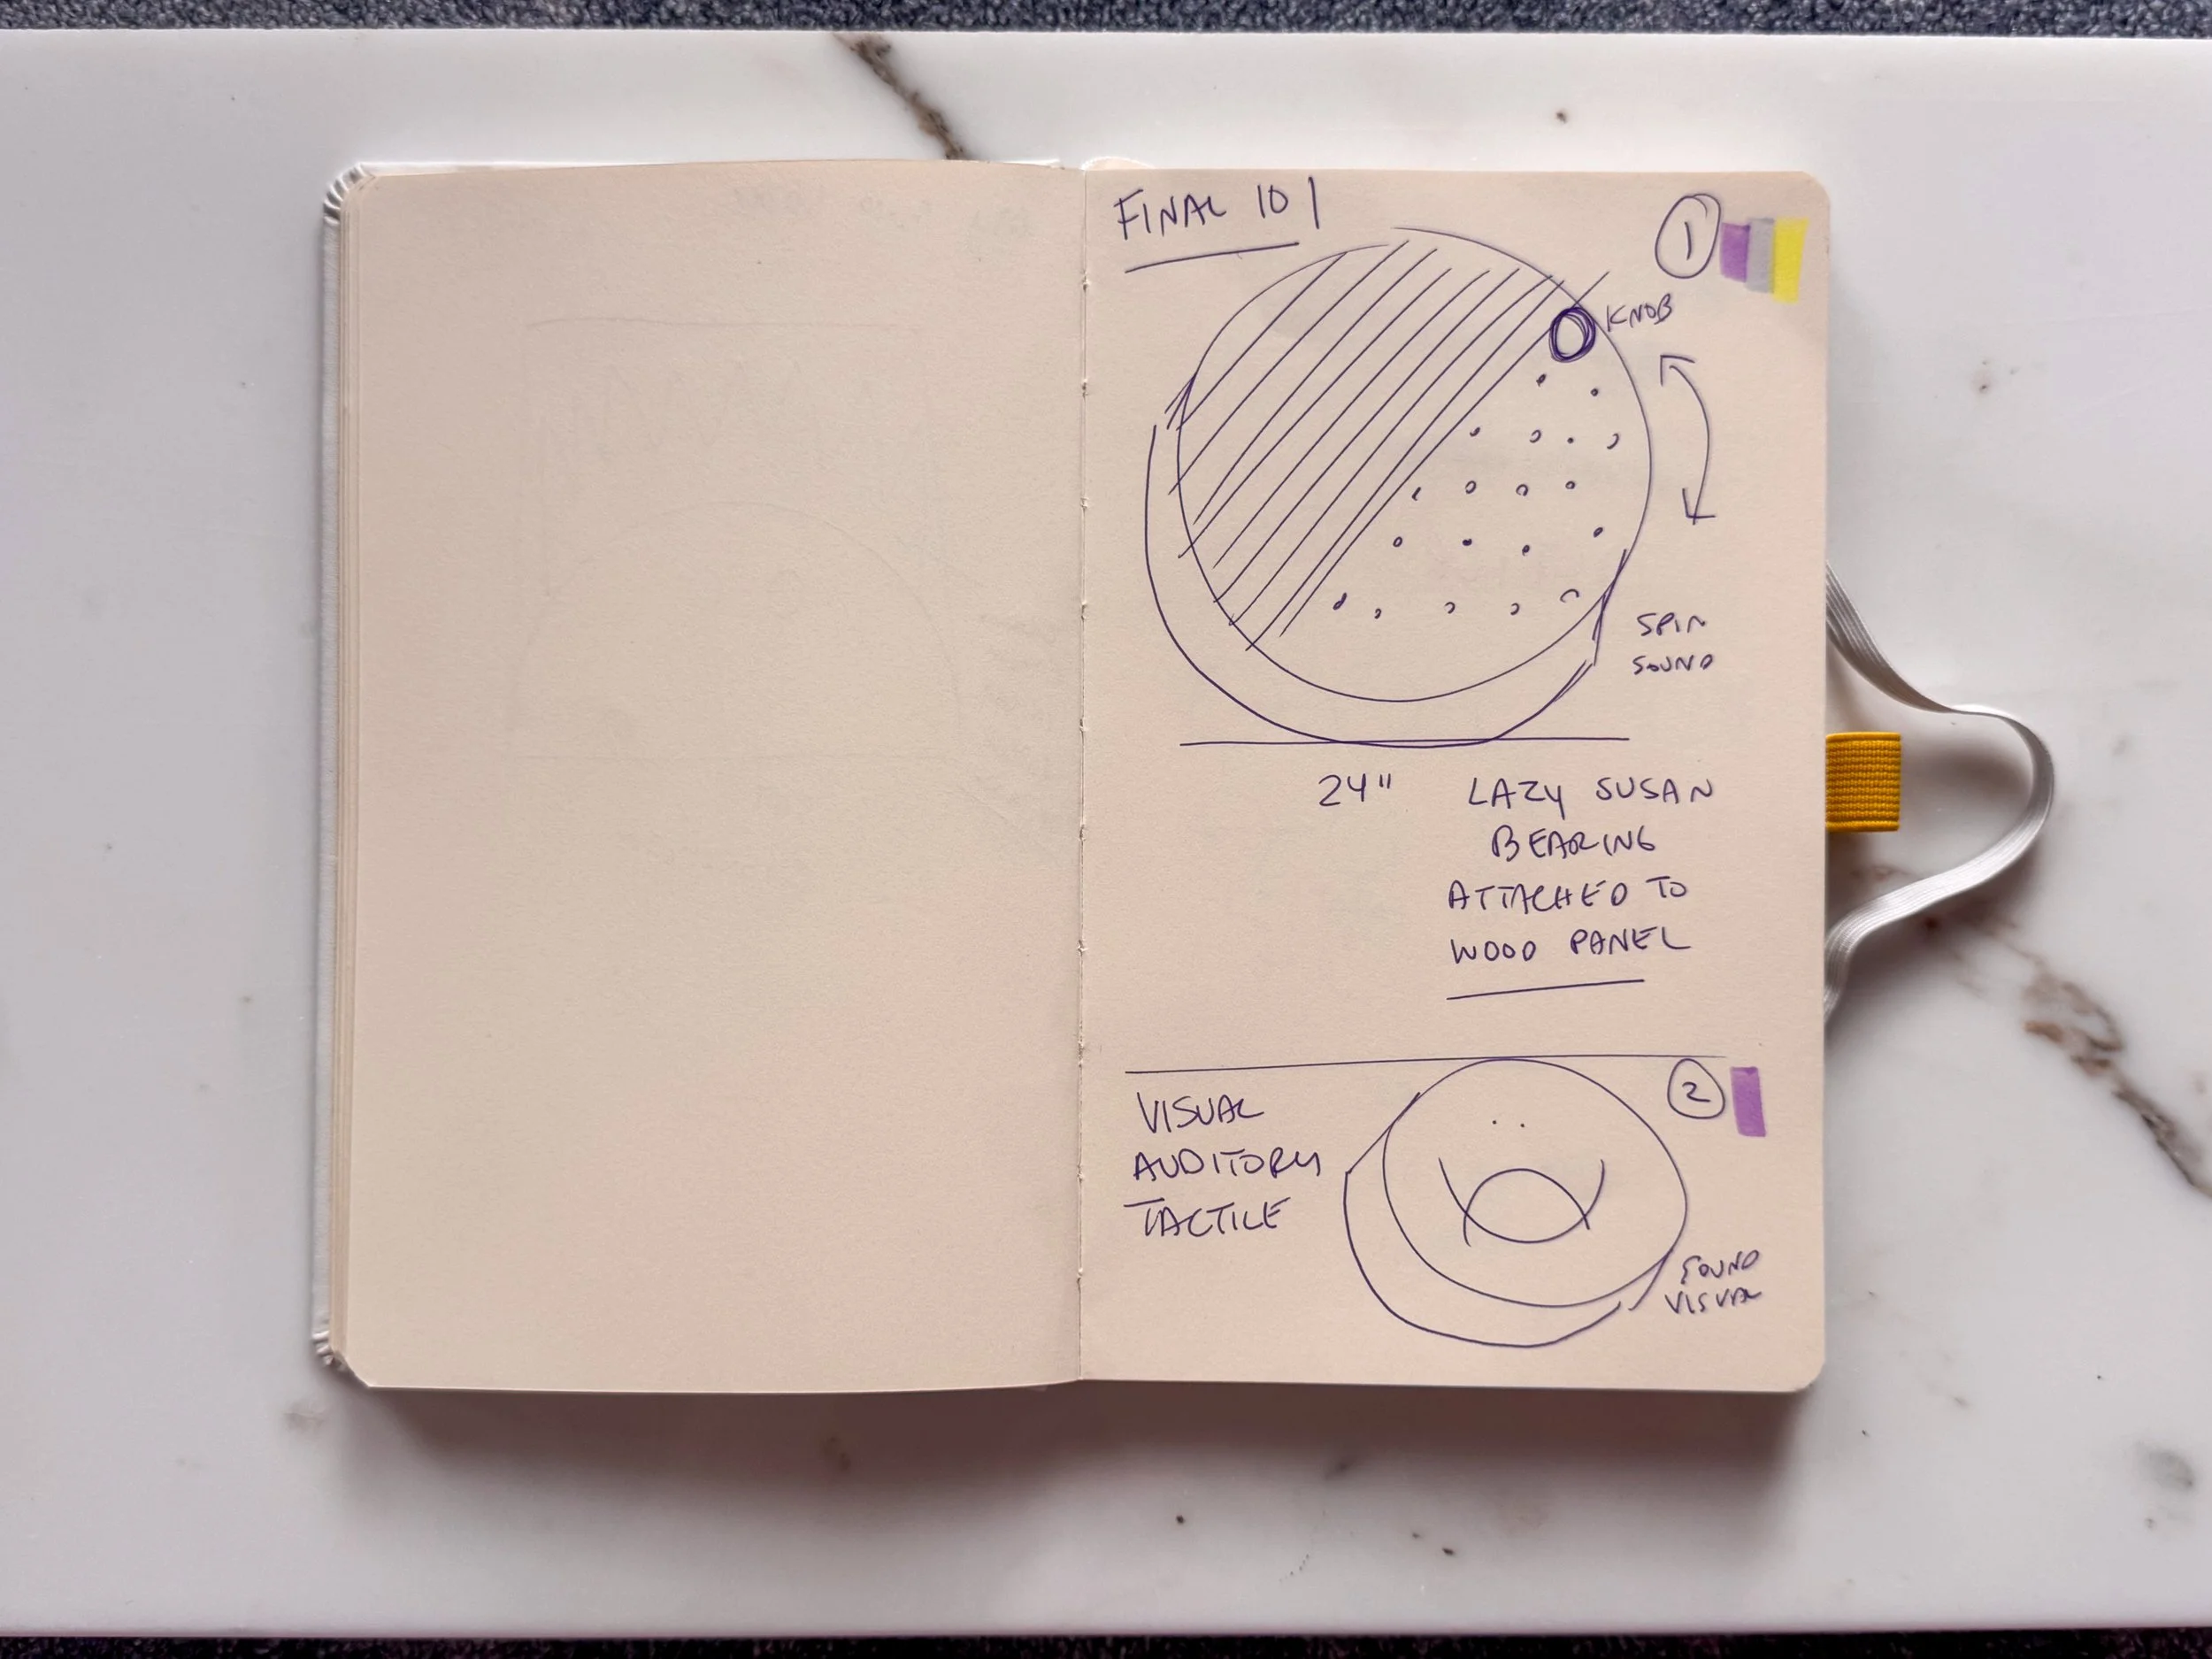 FINAL 101
1
KNOB
SPIN
SOUND
24" LAZY SUSAN
BEARING
ATTACHED TO
WOOD PANEL
2
VISUAL
AUDITORY
TACTILE
SOUND
VISUAL